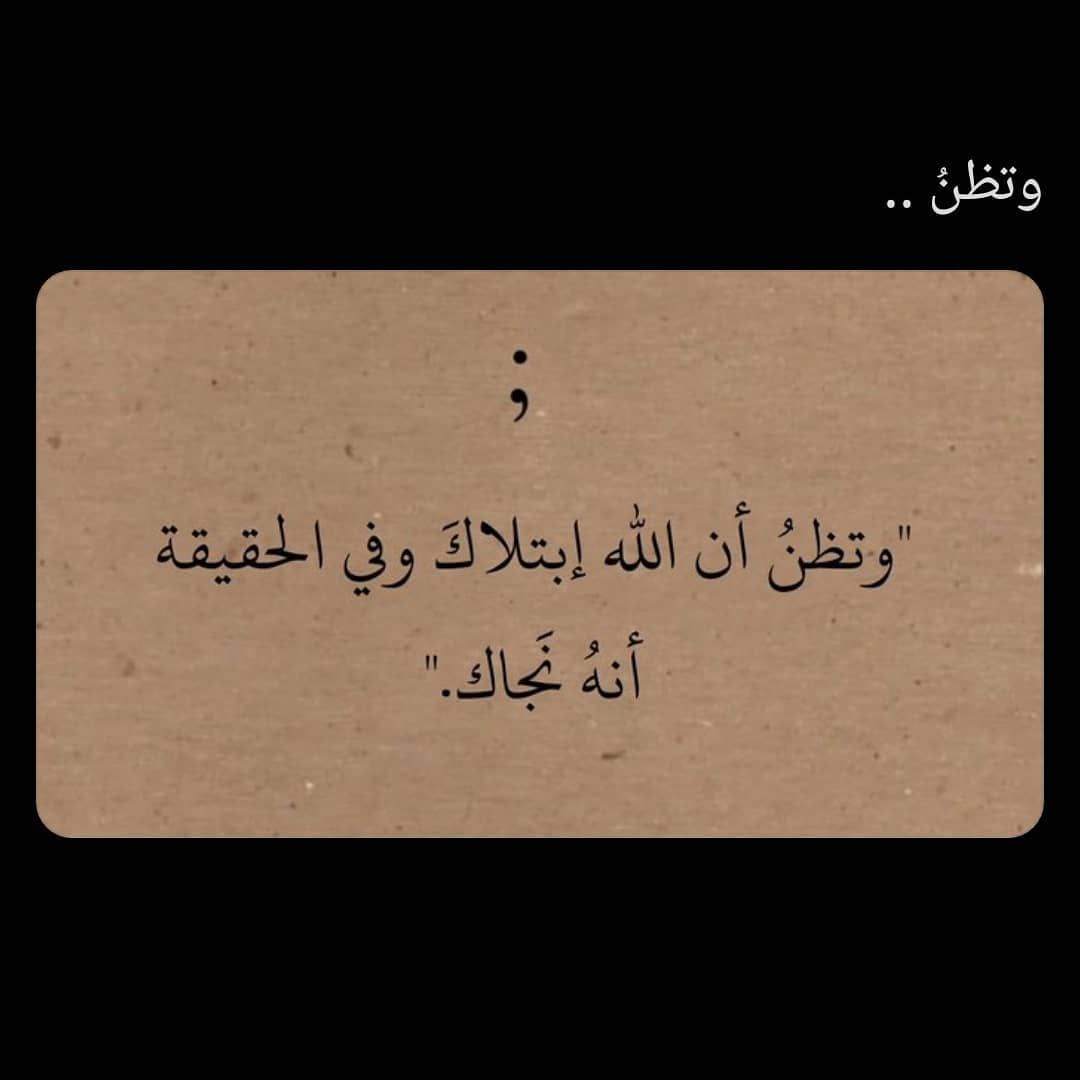 وتظنُ ..
؛
"وتظنُ أن الله إبتلاكَ وفي الحقيقة
أنهُ نَجاك."